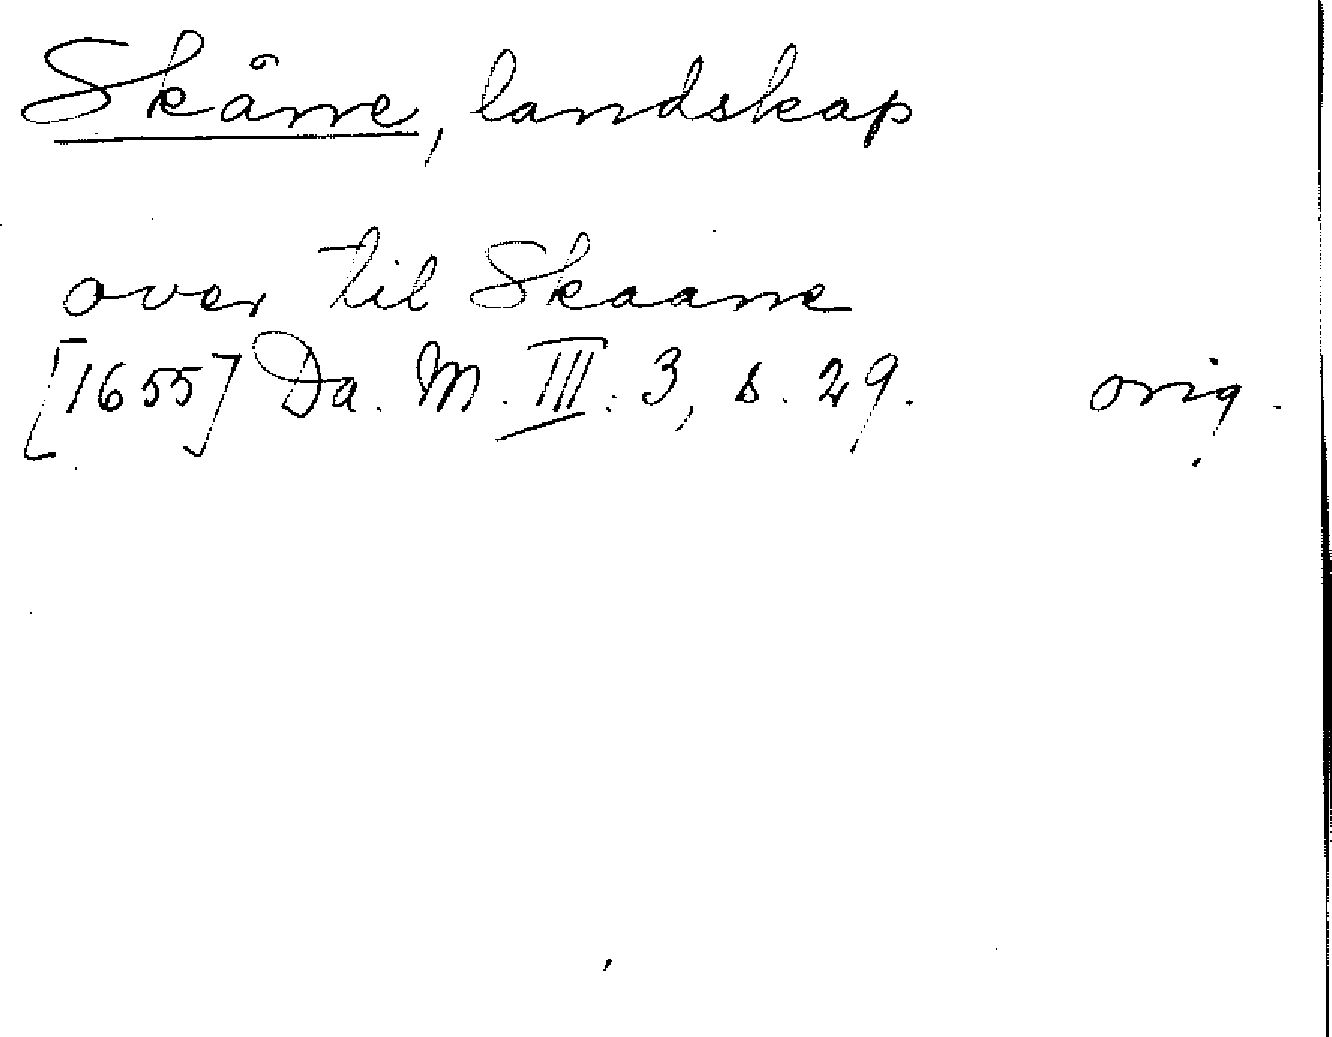 Skåne, landskap
over til Skaane
[1655] Da. M. III: 3, s. 29. orig.